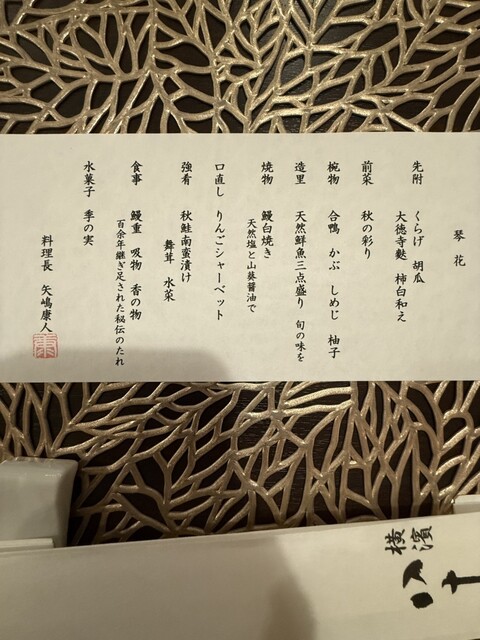 琴花
先附 くらげ 胡瓜
大徳寺麩 柿白和え
前菜 秋の彩り
椀物 合鴨 かぶ しめじ 柚子
造里 天然鮮魚三点盛り 旬の味を
焼物 鰻白焼き
天然塩と山葵醤油で
口直し りんごシャーベット
強肴 秋鮭南蛮漬け
舞茸 水菜
食事 鰻重 吸物 香の物
百余年継ぎ足された秘伝のたれ
水菓子 季の実
料理長 矢嶋康人
横濱